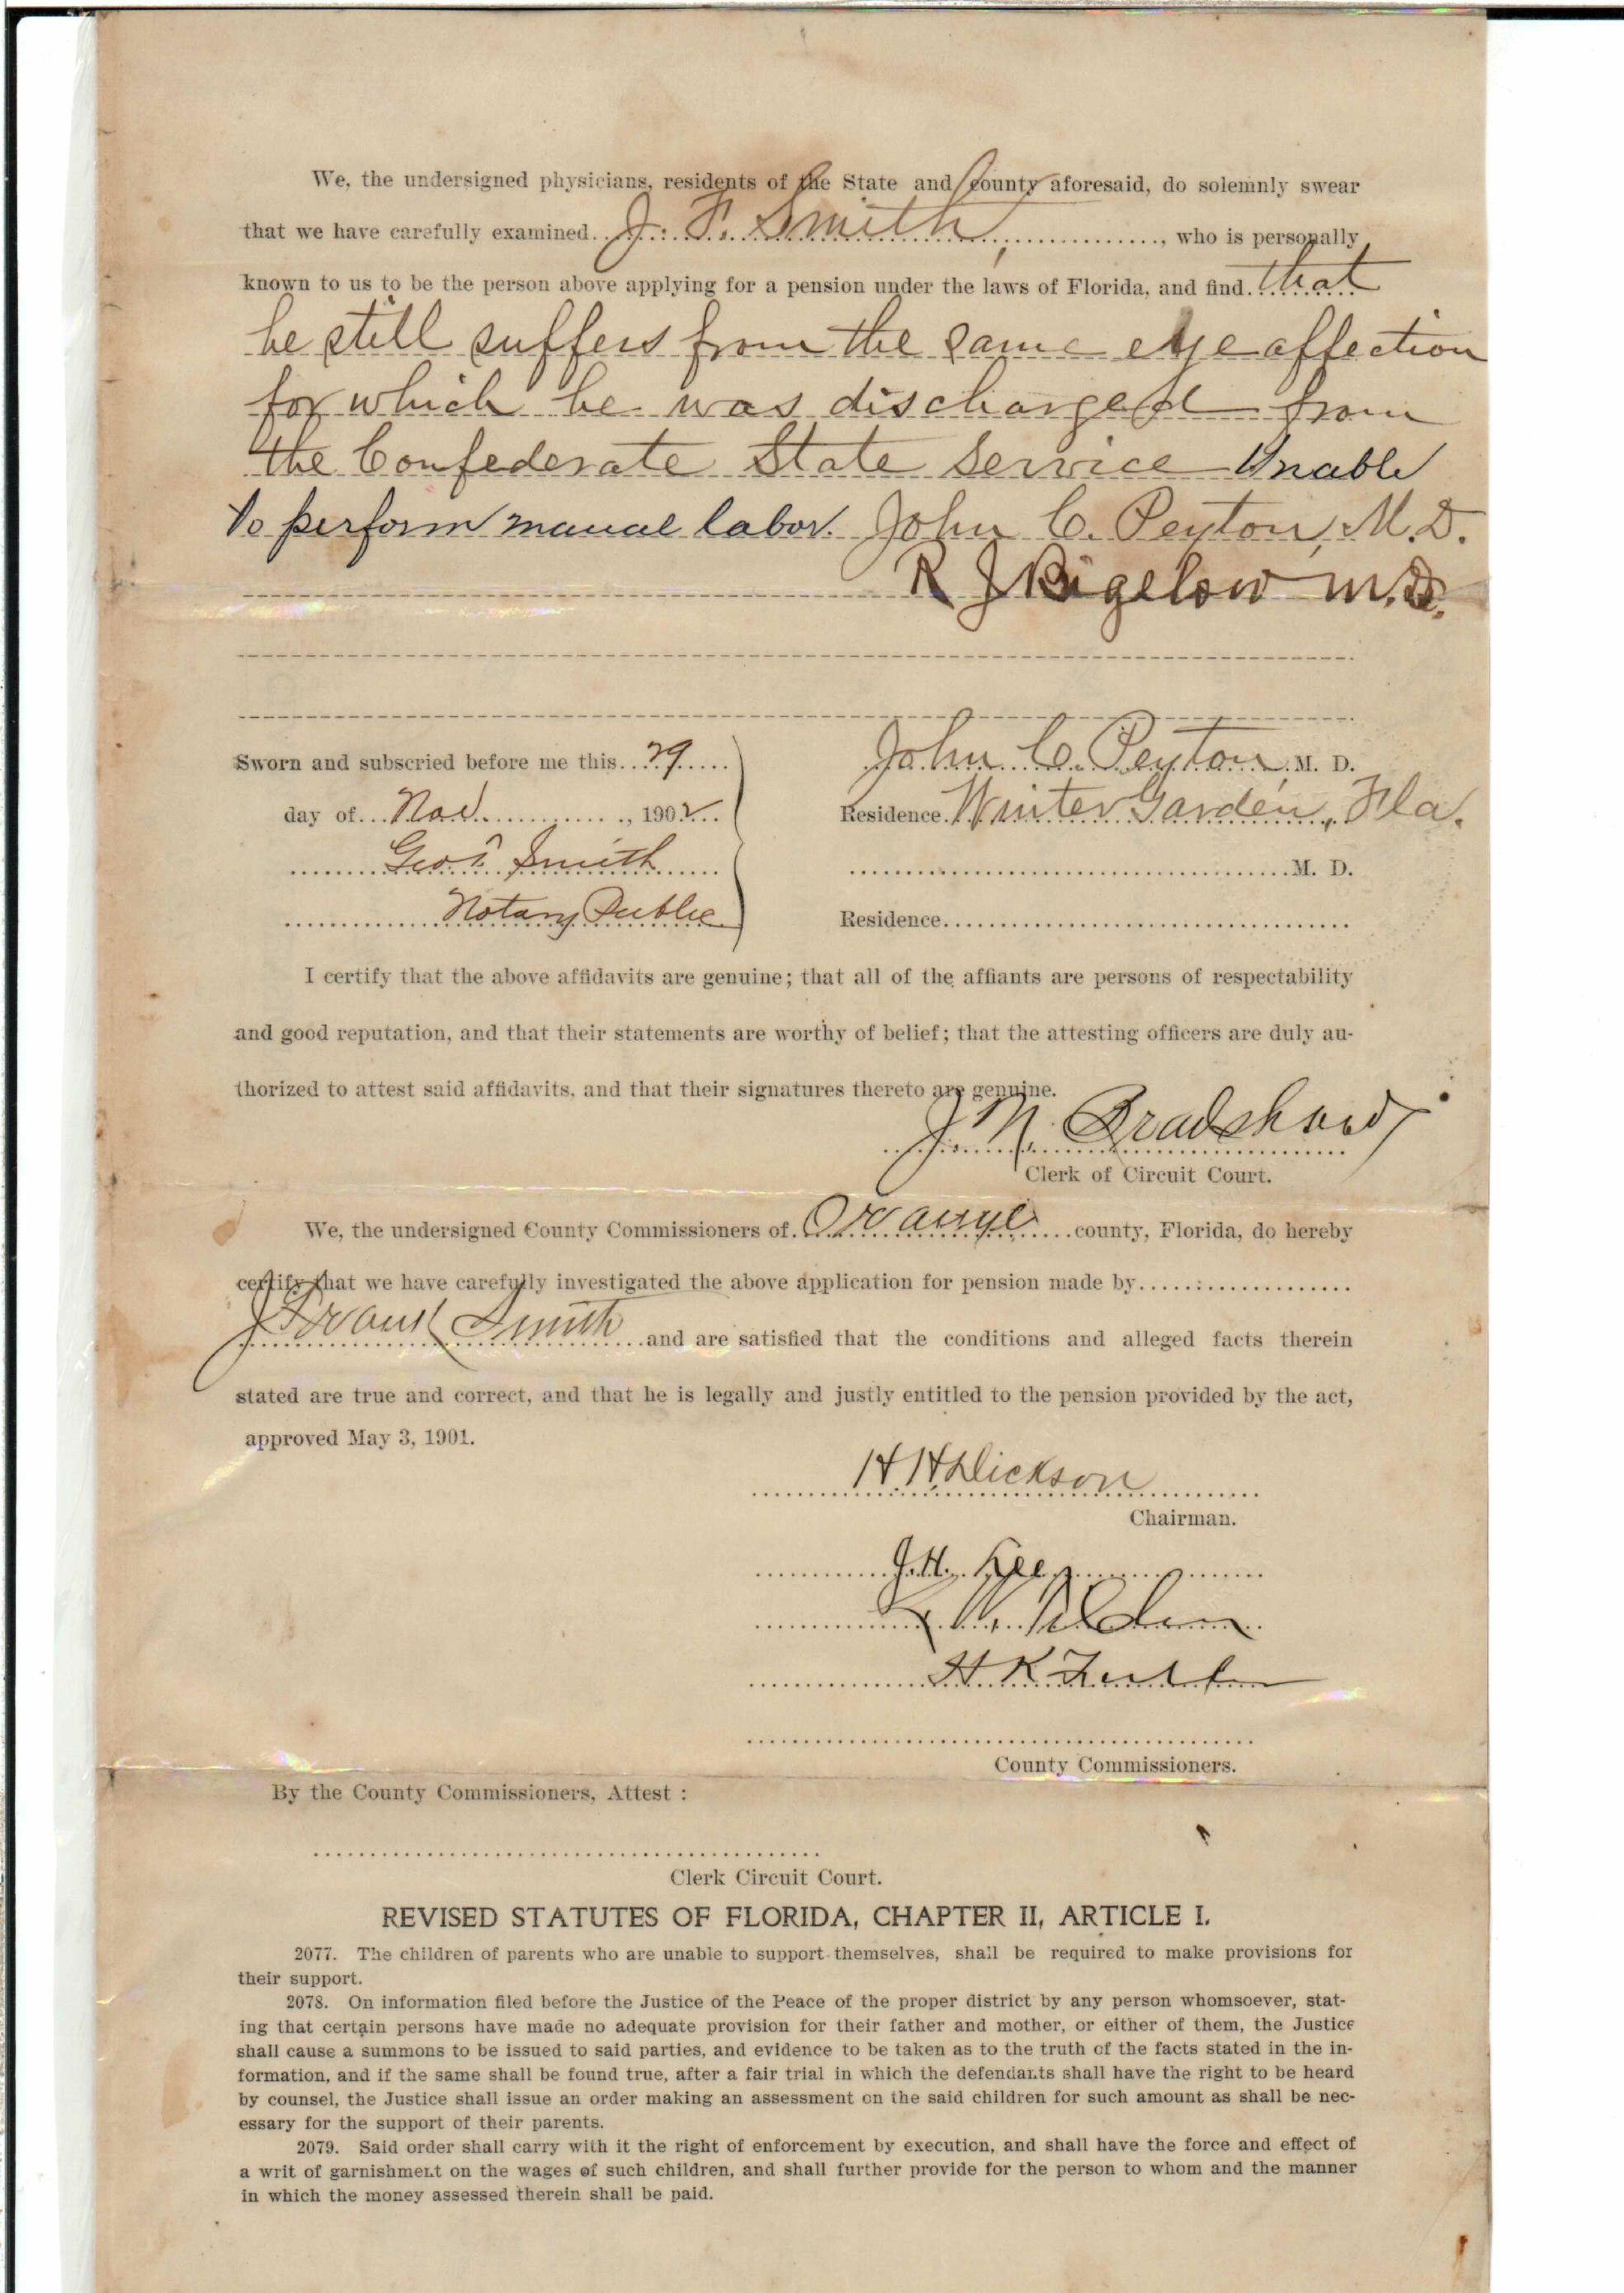 We, the undersigned physicians, residents of the State and county aforesaid, do solemnly swear
that we have carefully examined J. F. Smith, who is personally
known to us to be the person above applying for a pension under the laws of Florida, and find that
he still suffers from the same eye affection
for which he was discharged from
the Confederate State Service Unable
to perform manual labor. John C. Peyton, M.D.
R J Bigelow M.D.
Sworn and subscried before me this 29
day of Nov., 1902
Geo. T. Smith
Notary Public
John C. Peyton M. D.
Residence Winter Garden, Fla.
M. D.
Residence
I certify that the above affidavits are genuine; that all of the affiants are persons of respectability
and good reputation, and that their statements are worthy of belief; that the attesting officers are duly au-
thorized to attest said affidavits, and that their signatures thereto are genuine.
J. N. Bradshaw
Clerk of Circuit Court.
We, the undersigned County Commissioners of Orange county, Florida, do hereby
certify that we have carefully investigated the above application for pension made by
J Frank Smith and are satisfied that the conditions and alleged facts therein
stated are true and correct, and that he is legally and justly entitled to the pension provided by the act,
approved May 3, 1901.
H H Dickson
Chairman.
J. H. Lee
H K
County Commissioners.
By the County Commissioners, Attest :
Clerk Circuit Court.
REVISED STATUTES OF FLORIDA, CHAPTER II, ARTICLE I.
2077. The children of parents who are unable to support themselves, shall be required to make provisions for
their support.
2078. On information filed before the Justice of the Peace of the proper district by any person whomsoever, stat-
ing that certain persons have made no adequate provision for their father and mother, or either of them, the Justice
shall cause a summons to be issued to said parties, and evidence to be taken as to the truth of the facts stated in the in-
formation, and if the same shall be found true, after a fair trial in which the defendants shall have the right to be heard
by counsel, the Justice shall issue an order making an assessment on the said children for such amount as shall be nec-
essary for the support of their parents.
2079. Said order shall carry with it the right of enforcement by execution, and shall have the force and effect of
a writ of garnishment on the wages of such children, and shall further provide for the person to whom and the manner
in which the money assessed therein shall be paid.